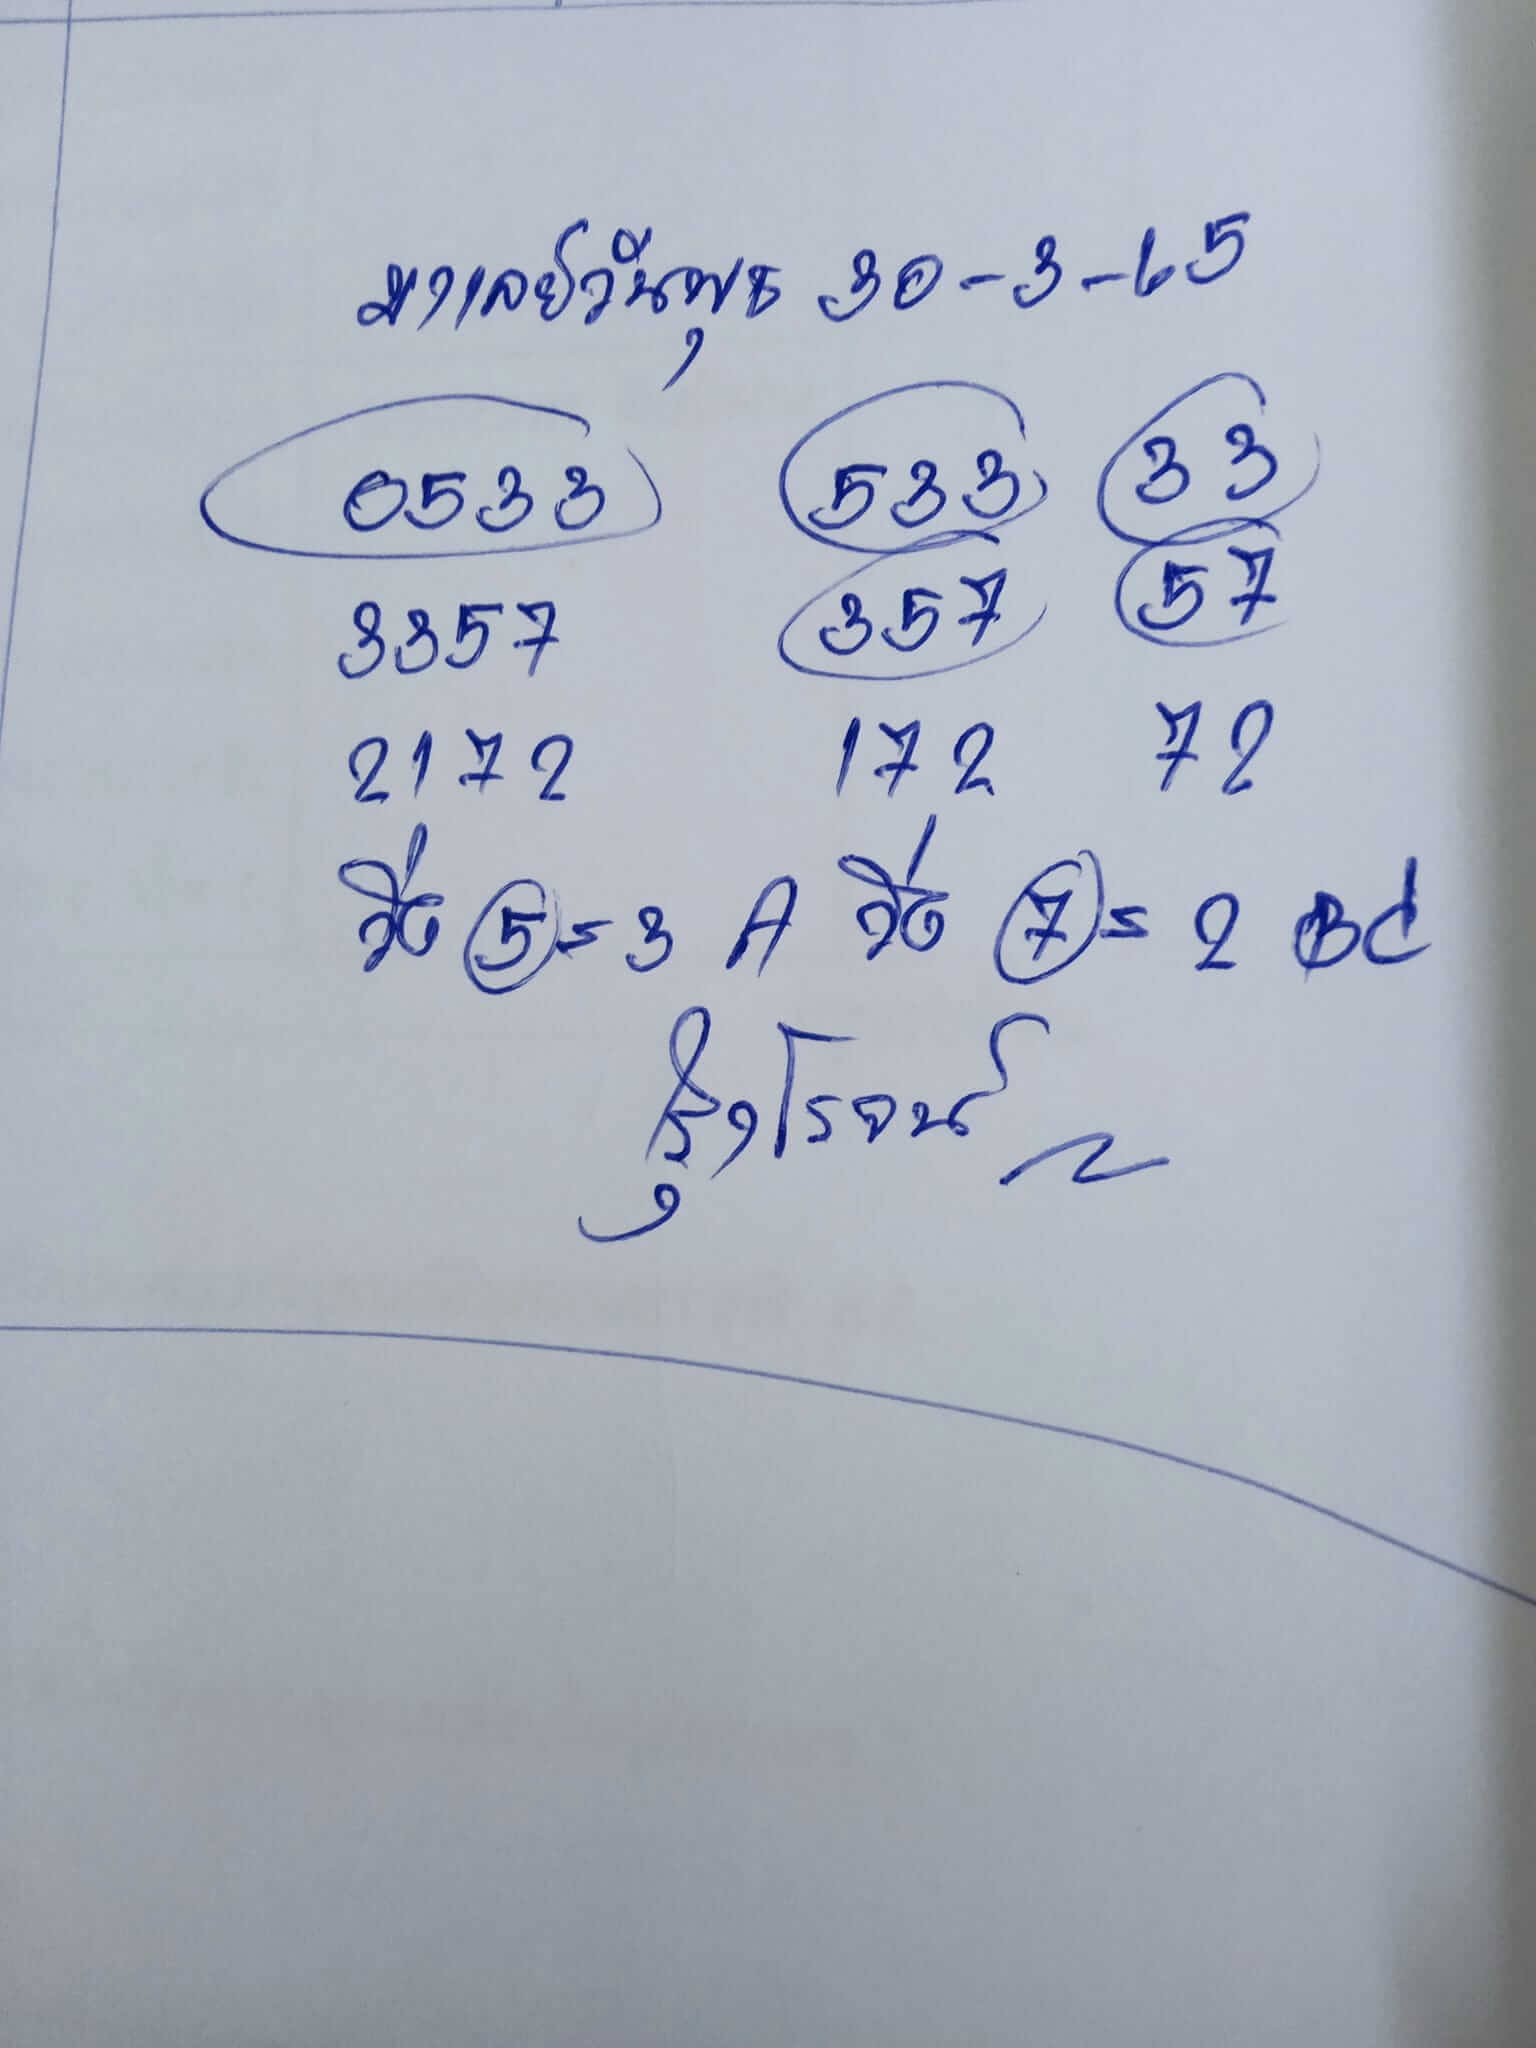 มาเลย์วันพุธ 30-3-65
0533 533 33
3357 357 57
2172 172 72
วิ่ง 5=3 A วิ่ง 7=2 BC